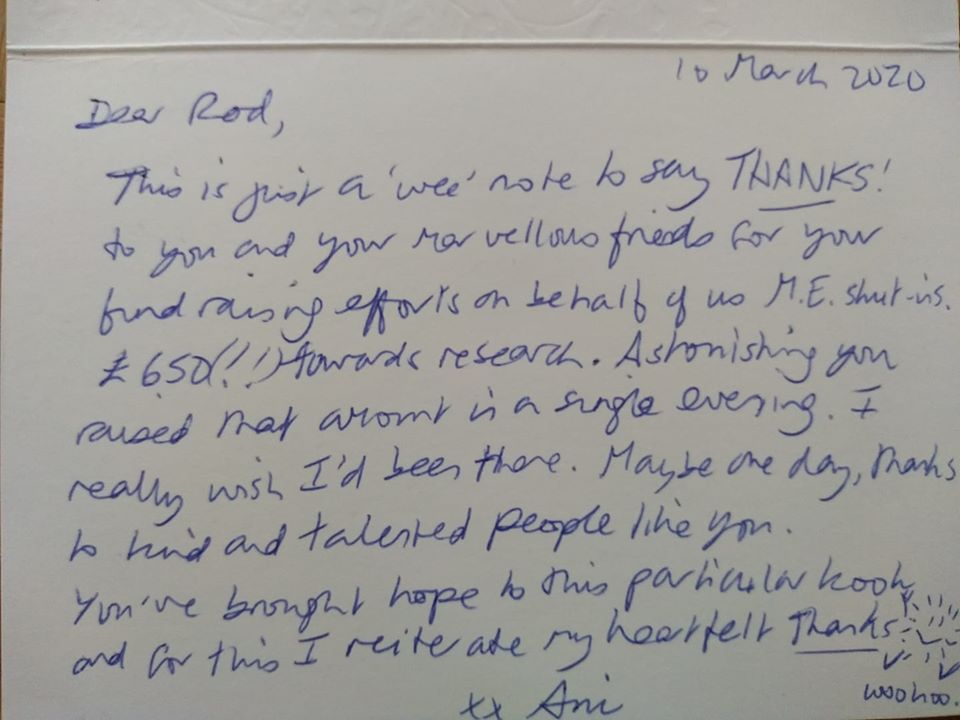 10 March 2020
Dear Rod,
This is just a 'wee' note to say THANKS!
to you and your marvellous friends for your
fund raising efforts on behalf of us M.E. shut-ins.
£650(!!) towards research. Astonishing you
raised that amount in a single evening. I
really wish I'd been there. Maybe one day, thanks
to kind and talented people like you.
You've brought hope to this particular kook,
and for this I reiterate my heartfelt Thanks
woohoo.
xx Ani